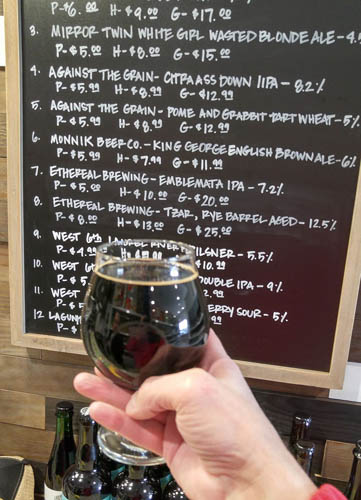 P-$6.00 H-$9.00 G-$17.00
3. MIRROR TWIN WHITE GIRL WASTED BLONDE ALE-4.
P-$5.00 H-$8.00 G-$15.00
4. AGAINST THE GRAIN- CITRA ASS DOWN IIPA-8.2%
P-$5.99 H-$8.99 G-$12.99
5. AGAINST THE GRAIN- POME AND GRABBIT TART WHEAT-5%
P-$5.99 H-$8.99 G-$12.99
6. MONNIK BEER CO.-KING GEORGE ENGLISH BROWN ALE-6%
P-$5.99 H-$7.99 G-$11.99
7. ETHEREAL BREWING- EMBLEMATA IPA-7.2%
P-$5.00 H-$10.00 G-$20.00
8. ETHEREAL BREWING- TZAR, RYE BARREL AGED-12.5%
P-$8.00 H-$13.00 G-$25.00
9. WEST 6th PILSNER-5.5%
P-$4.99 $10.99
10. WEST 6 DOUBLE IPA-9%
P-$5 2.99
11. WEST ERRY SOUR-5%
P-$
12 LAGUN
P-$